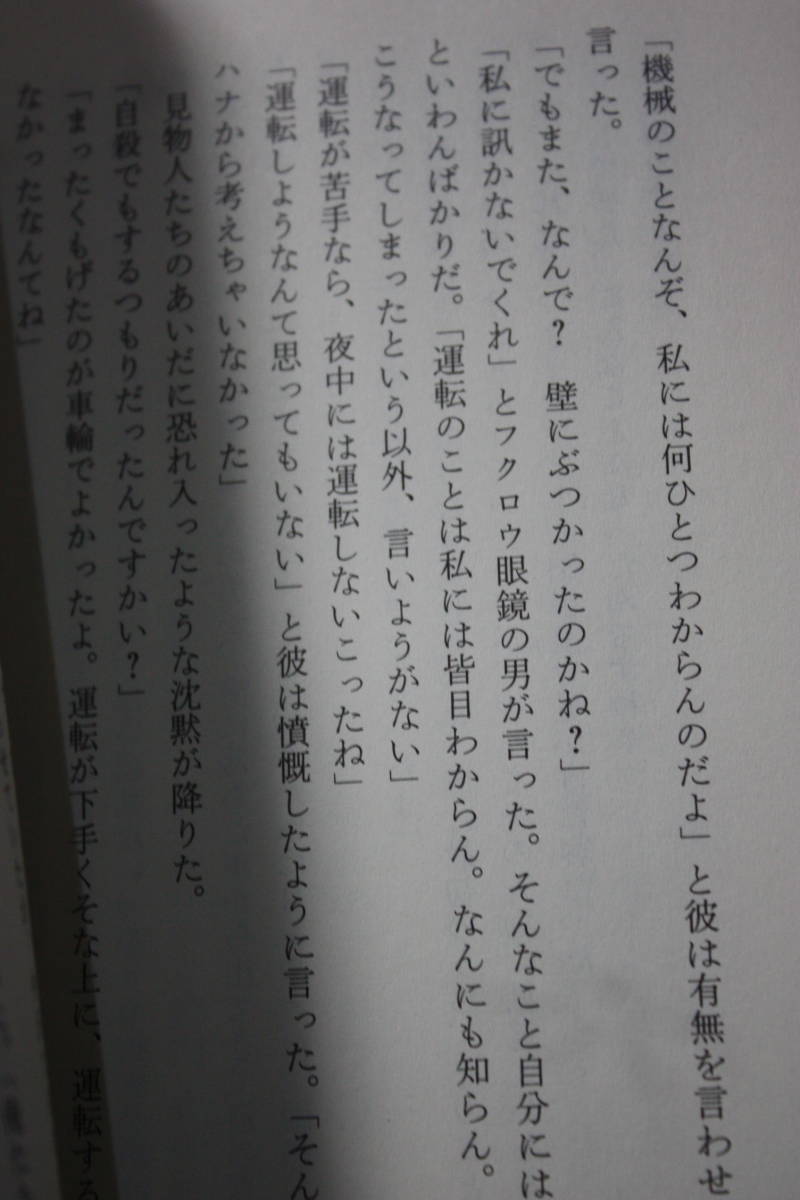 「機械のことなんぞ、私には何ひとつわからんのだよ」と彼は有無を言わせ
言った。
「でもまた、なんで？　壁にぶつかったのかね？」
「私に訊かないでくれ」とフクロウ眼鏡の男が言った。そんなこと自分には
といわんばかりだ。「運転のことは私には皆目わからん。なんにも知らん。
こうなってしまったという以外、言いようがない」
「運転が苦手なら、夜中には運転しないこったね」
「運転しようなんて思ってもいない」と彼は憤慨したように言った。「そん
ハナから考えちゃいなかった」
見物人たちのあいだに恐れ入ったような沈黙が降りた。
「自殺でもするつもりだったんですかい？」
「まったくもげたのが車輪でよかったよ。運転が下手くそな上に、運転する
なかったなんてね」